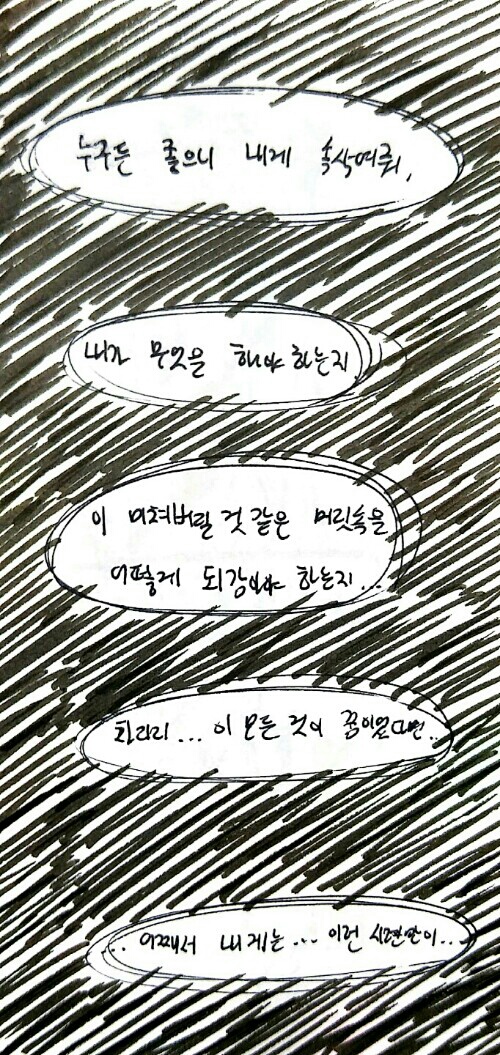 누구든 좋으니 내게 속삭여줘,
내가 무엇을 해야 하는지
이 미쳐버릴 것 같은 머릿속을
어떻게 되감아야 하는지...
차라리... 이 모든 것이 꿈이었다면..
.. 어째서 내게는... 이런 시련만이...